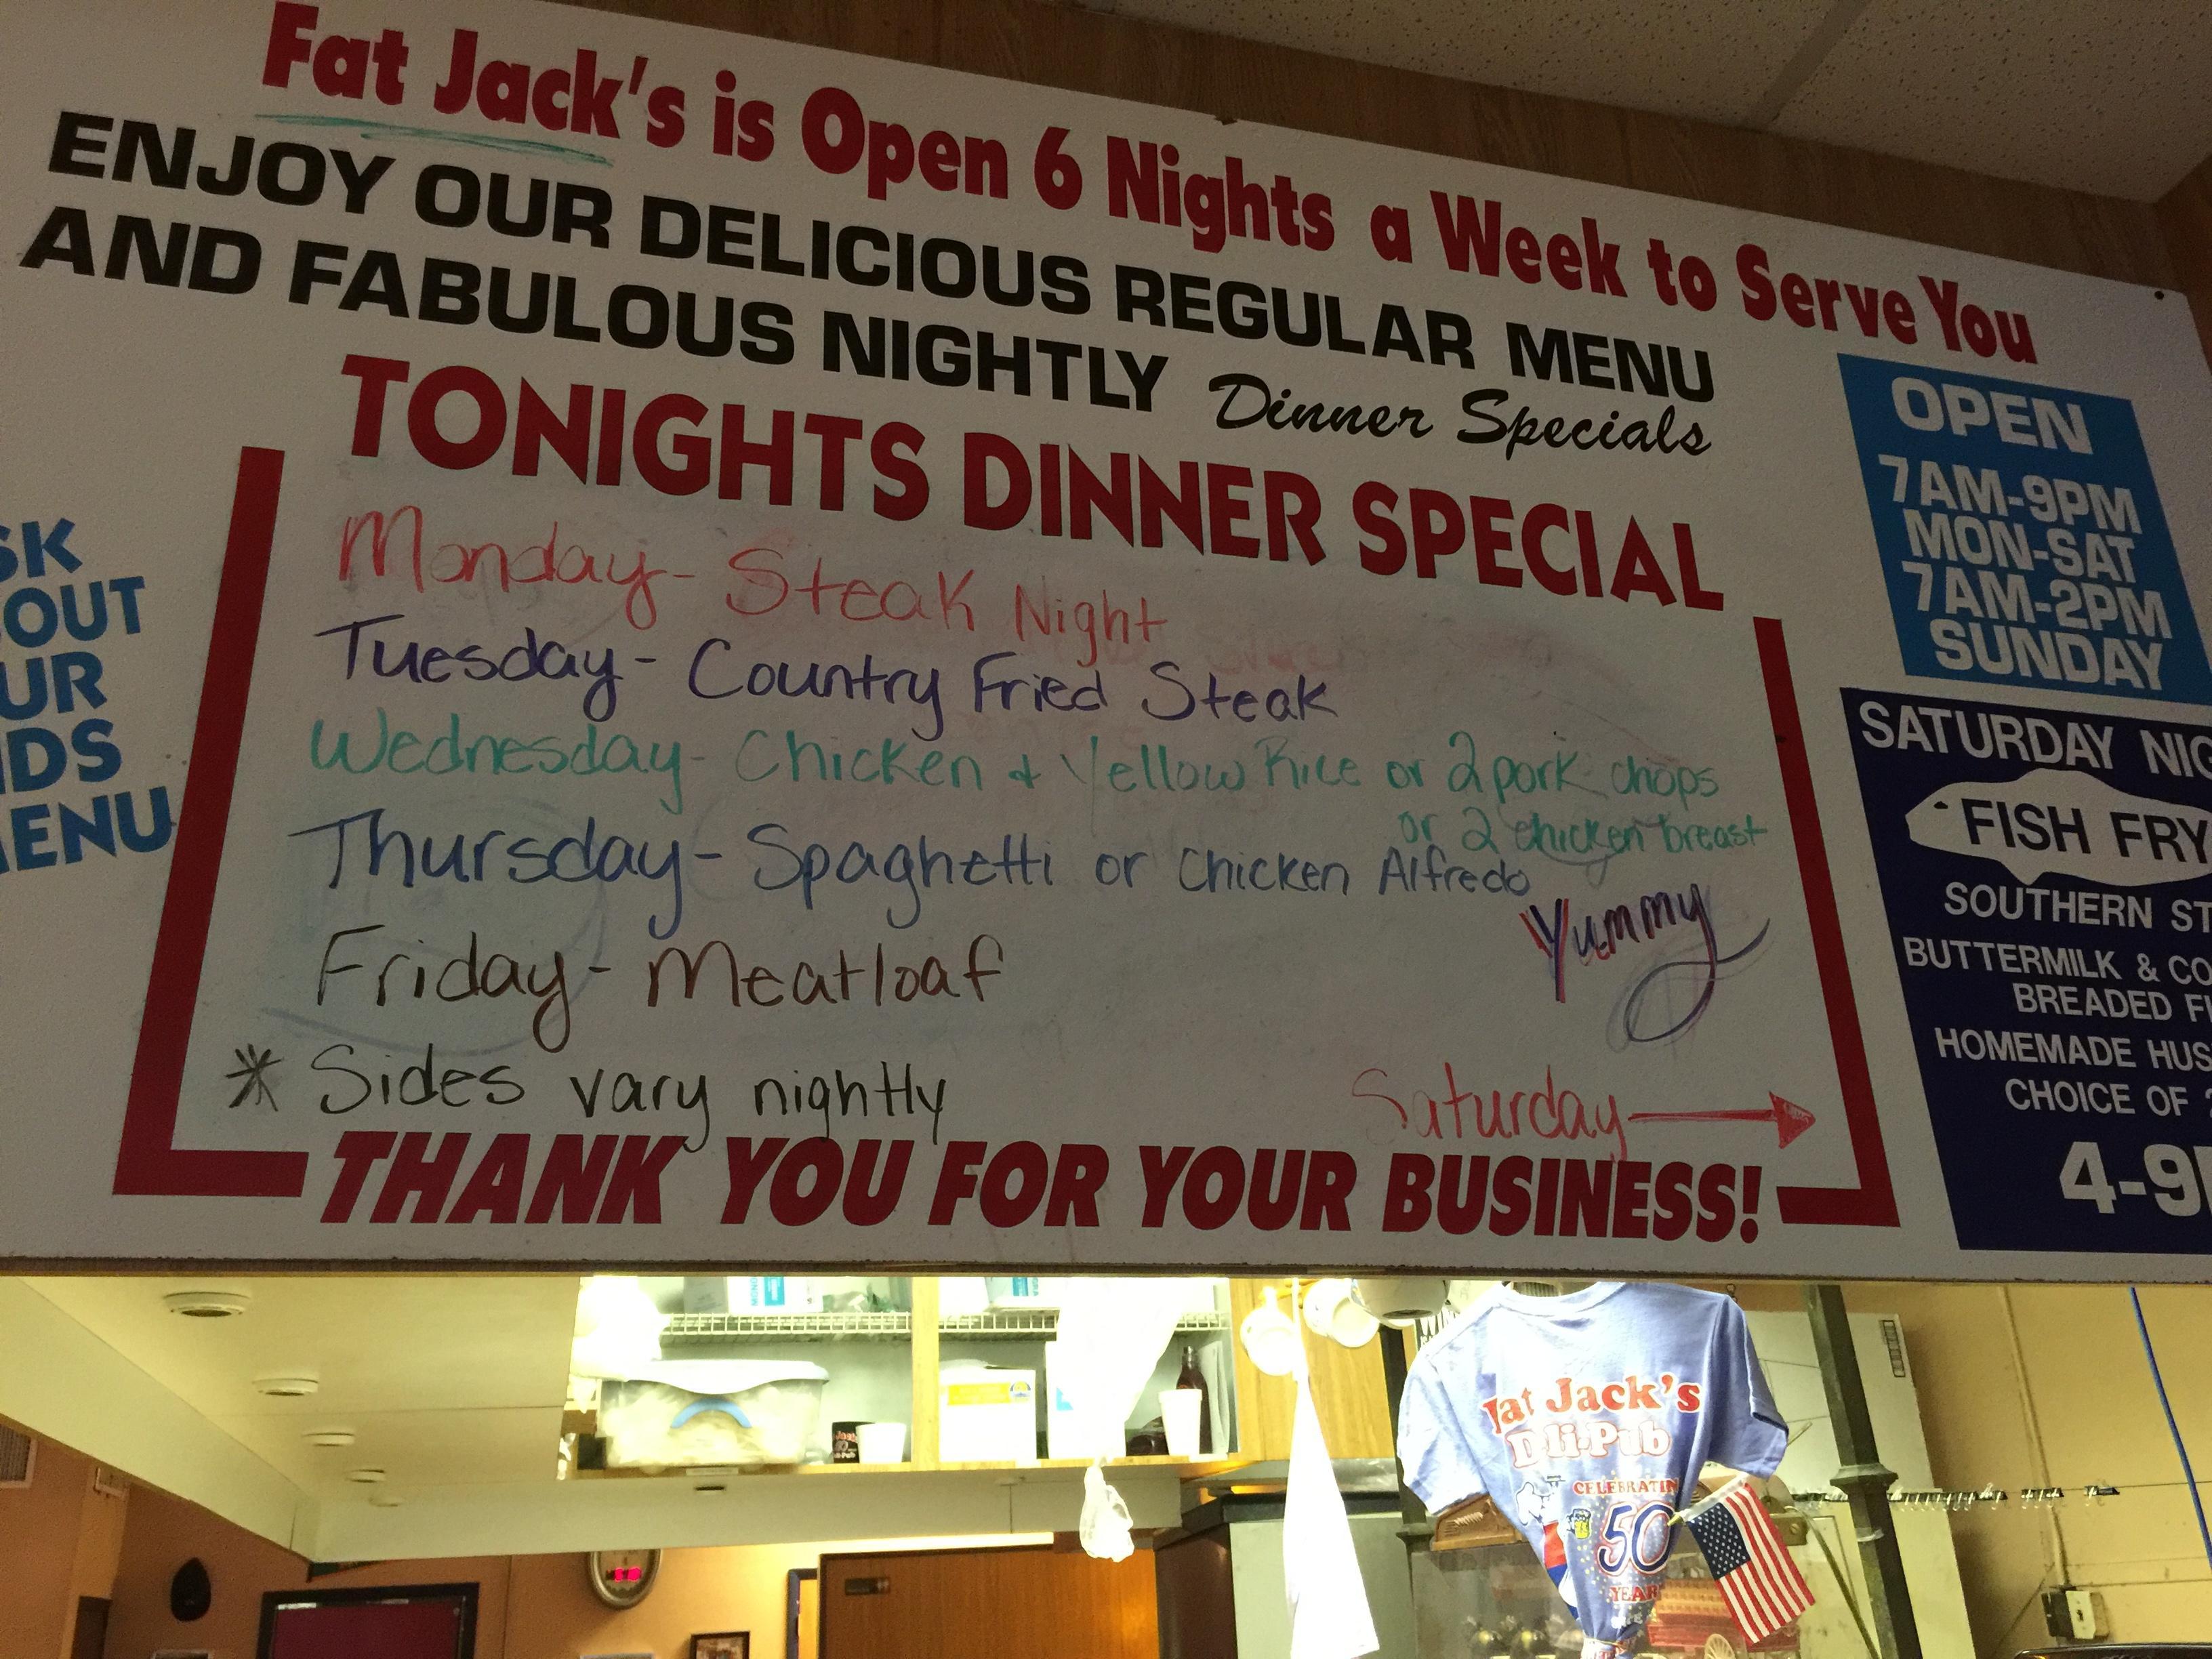 Fat Jack's is Open 6 Nights a Week to Serve You
ENJOY OUR DELICIOUS REGULAR MENU
AND FABULOUS NIGHTLY Dinner Specials
TONIGHTS DINNER SPECIAL
Monday - Steak Night
Tuesday - Country Fried Steak
Wednesday - Chicken & Yellow Rice or 2 pork chops
or 2 chicken breast
Thursday - Spaghetti or chicken Alfredo
Yummy
Friday - Meatloaf
* Sides vary nightly
Saturday →
THANK YOU FOR YOUR BUSINESS!
SK
OUT
UR
IDS
MENU
OPEN
7AM-9PM
MON-SAT
7AM-2PM
SUNDAY
SATURDAY NIG
FISH FRY
SOUTHERN ST
BUTTERMILK & CO
BREADED FI
HOMEMADE HUS
CHOICE OF
4-9
Fat Jack's
Deli-Pub
CELEBRATIN
50
YEAR